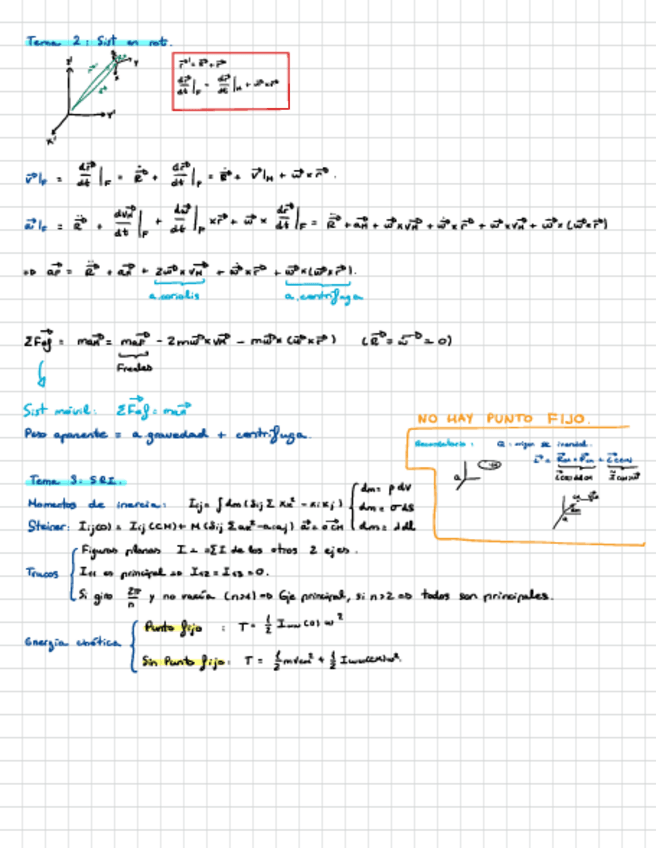 Tema 2: Sist en rot.
z'
Y
X
Y'
X'
r⃗' = R⃗ + r⃗
dr⃗/dt|_F = dr⃗/dt|_M + ω⃗ x r⃗
v⃗|_F = dr⃗'/dt|_F = Ṙ⃗ + dr⃗/dt|_F = Ṙ⃗ + v⃗|_M + ω⃗ x r⃗.
a⃗|_F = R̈⃗ + dv⃗_M/dt|_F + dω⃗/dt|_F x r⃗ + ω⃗ x dr⃗/dt|_F = R̈⃗ + a⃗_M + ω⃗ x v⃗_M + ω̇⃗ x r⃗ + ω⃗ x v⃗_M + ω⃗ x (ω⃗ x r⃗)
=> a⃗_F = R̈⃗ + a⃗_M + 2ω⃗ x v⃗_M + ω̇⃗ x r⃗ + ω⃗ x (ω⃗ x r⃗).
a.coriolis a.centrífuga
ΣF⃗ef = ma⃗_M = ma⃗_F - 2mω⃗ x v⃗_M - mω⃗ x (ω⃗ x r⃗) (R̈⃗ = ω̇⃗ = 0)
Freales
Sist móvil: ΣF⃗ef = ma⃗
Peso aparente = a gravedad + centrífuga.
NO HAY PUNTO FIJO.
Recordatorio: Q: origen se inercial.
Q
Tema 3: S.R.I.
Momentos de inercia: Iij = ∫dm (δij Σ xk² - xi xj) { dm = ρ dV
dm = σ dS
dm = λ dl
Steiner: Iij(O) = Iij (CM) + M (δij Σ ak² - ai aj) a⃗ = OCM
Trucos { Figuras planas I⊥ = ΣI de los otros 2 ejes.
I11 es principal => I12 = I13 = 0.
Si giro 2π/n y no varía (n>1) => Eje principal, si n>2 => todos son principales.
Energía cinética { Punto fijo: T = 1/2 Iωω (O) ω²
Sin Punto fijo: T = 1/2 mvcm² + 1/2 Iωω(CM)ω².